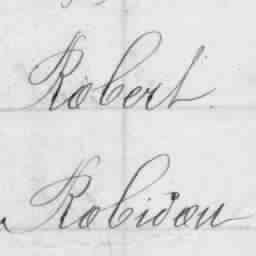 Robert
Robidou